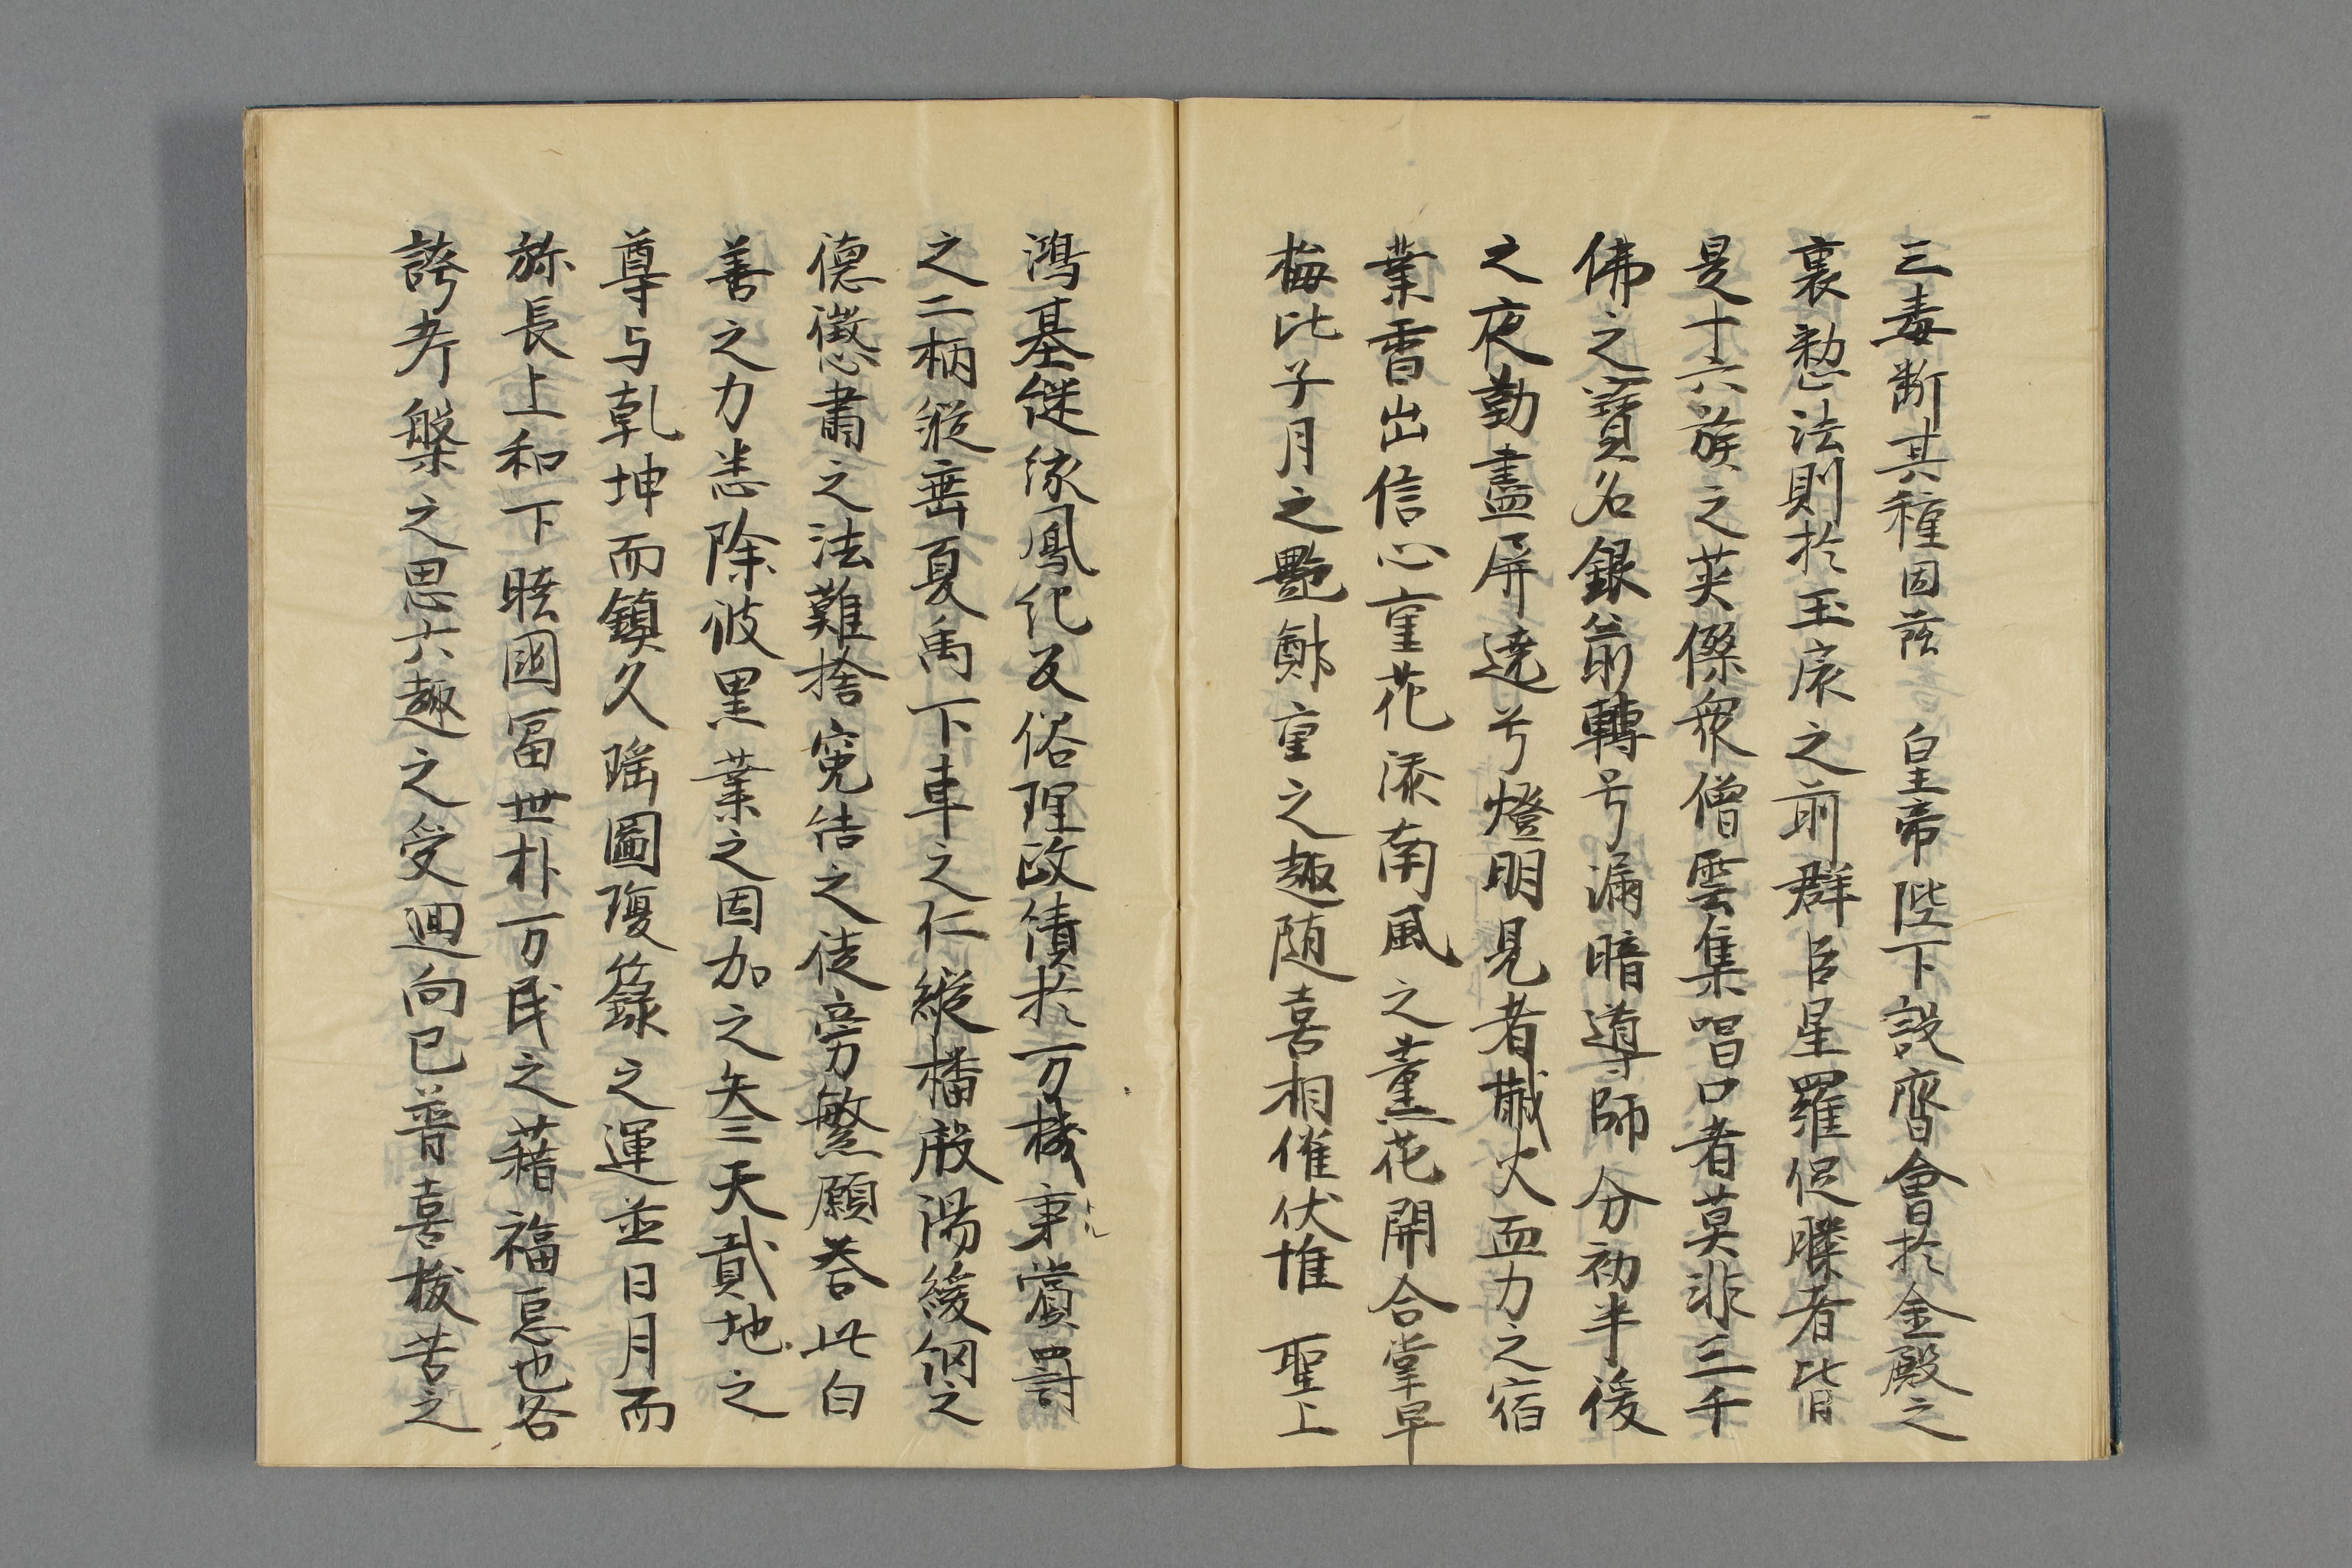 三毒断其種因茲　皇帝陛下設齋會於金殿之
裏懃法則於玉扆之前群臣星羅促膝者皆
是十六族之英傑衆僧雲集唱口者莫非三千
佛之寶名銀箭轉兮漏暗導師分初半後
之夜勤畫屏遶兮燈明見者滅火血力之宿
業雪出信心重花添南風之薫花開合掌早
梅比子月之艶鄭重之趣随喜相催伏惟　聖上
鴻基継家鳳化反俗理政績於万機秉賞罰
之二柄縦垂夏禹下車之仁縦播殷湯緩網之
徳懲肅之法難捨寃結之徒旁繁願答此白
善之力悉除彼黒業之因加之矣三天貳地之
尊与乾坤而鎮久瑶圖瓊籙之運並日月而
弥長上和下睦國冨世朴万民之藉福德也各
誇考槃之思六趣之受廻向已普喜抜苦之